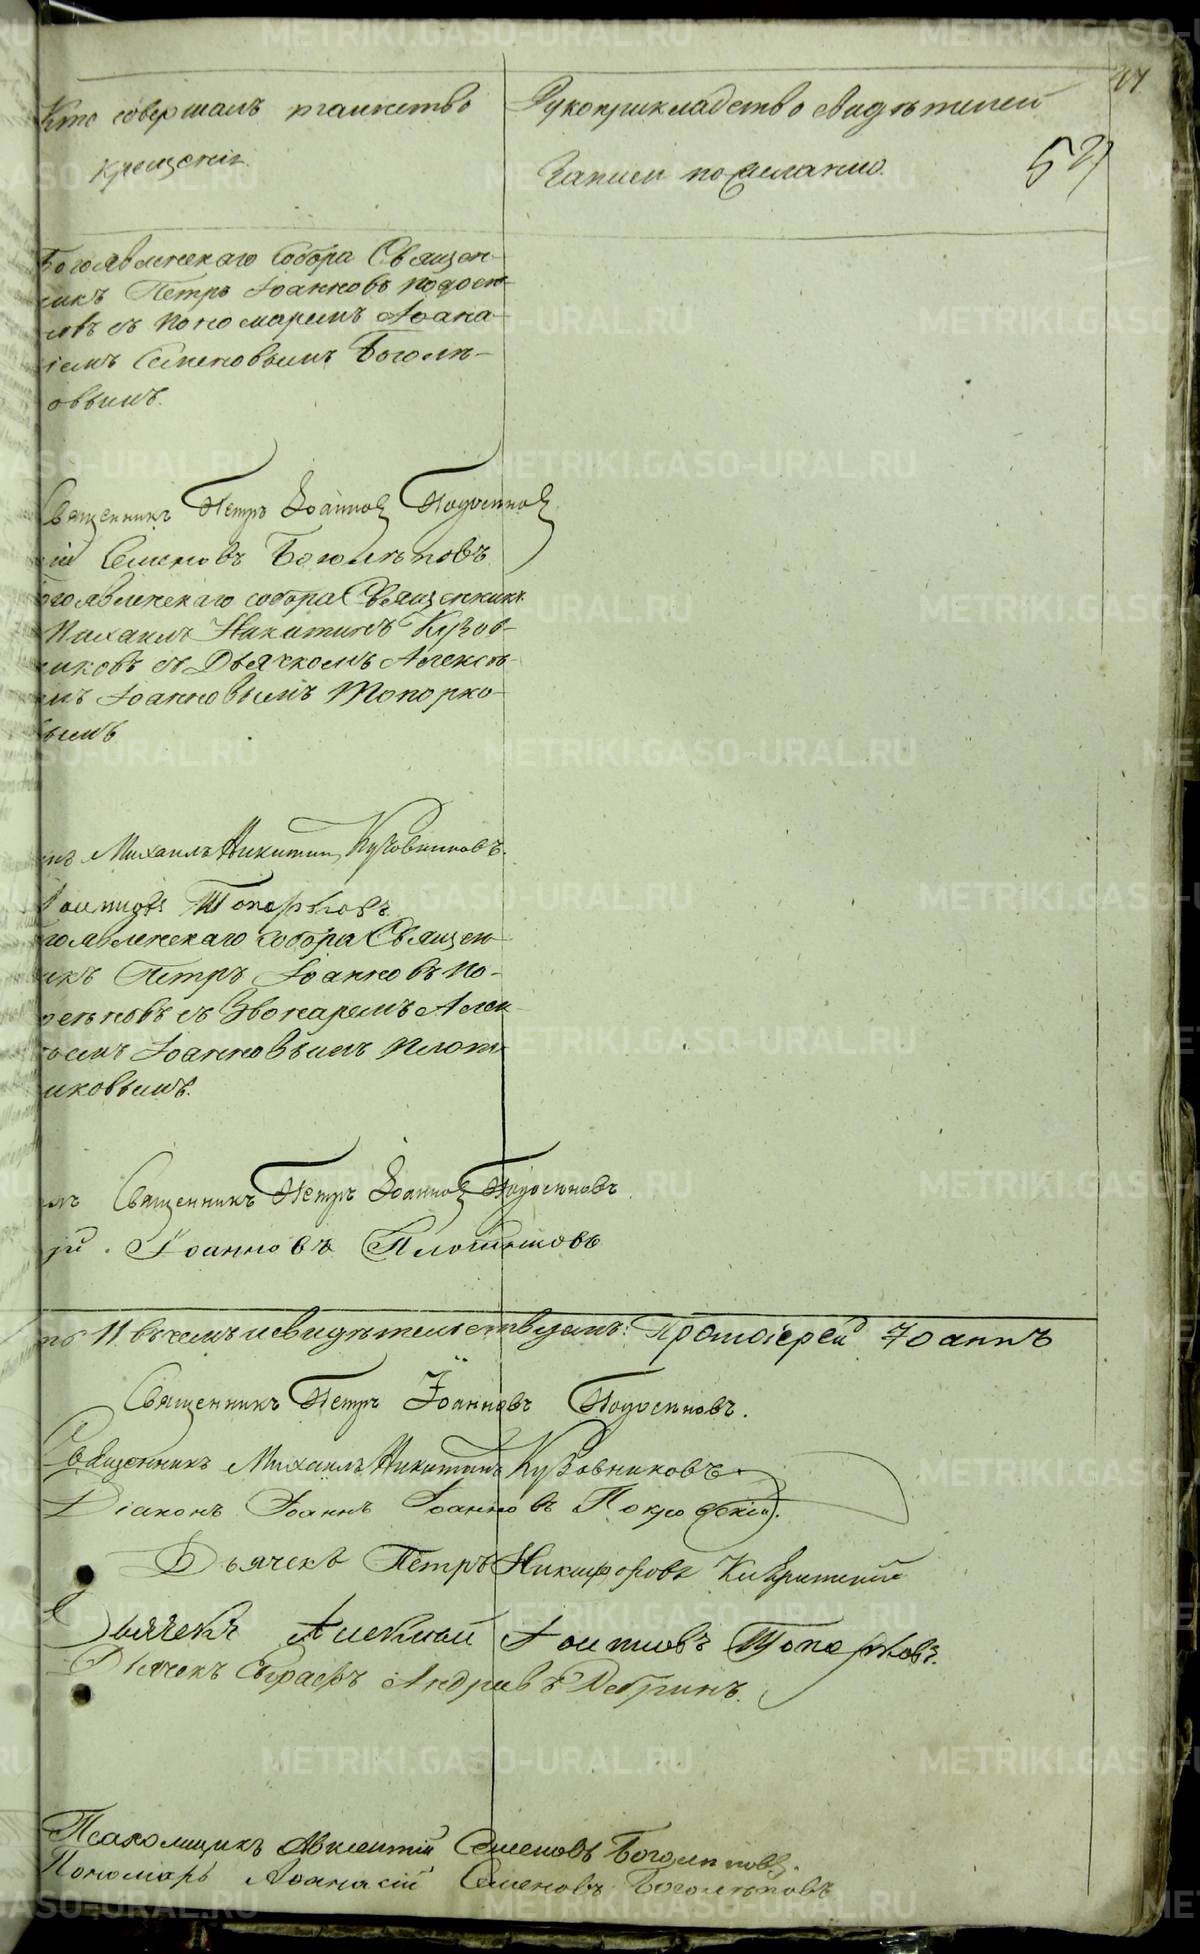 47
Кто совершалъ таинство
крещенія.
Рукоприкладство свидѣтелей
записи по желанію.
52
Богоявленскаго Собора Священ-
никъ Петръ Іоанновъ Подосе-
новъ съ пономаремъ Аѳана-
сіемъ Семеновымъ Боголѣ-
повымъ.
Священникъ Петръ Іоанновъ Подосеновъ
сій Семеновъ Боголѣповъ
огоявленскаго собора Священникъ
Михаилъ Никитинъ Кузов-
никовъ съ Дьячкомъ Алексѣ-
мъ Іоанновымъ Топорко-
вымъ
Михаилъ Никитинъ Кузовниковъ.
Іоанновъ Топорковъ
гоявленскаго собора Священ-
икъ Петръ Іоанновъ По-
осеновъ съ Звонаремъ Алек-
ѣемъ Іоанновымъ Плот-
никовымъ.
Священникъ Петръ Іоанновъ Подосеновъ
ій Іоанновъ Плотниковъ
11 въ чемъ и свидѣтельствуемъ: Протоіерей Іоаннъ
Священникъ Петръ Іоанновъ Подосеновъ.
Священникъ Михаилъ Никитинъ Кузовниковъ
Діаконъ Іоаннъ Іоанновъ Покровскій.
Дьячекъ Петръ Никифоровъ
Дьячекъ Алексѣй Іоанновъ Топорковъ.
Дьячекъ Андреевъ
Псаломщикъ Семеновъ Боголѣповъ.
Пономарь Аѳанасій Семеновъ Боголѣповъ
METRIKI.GASO-URAL.RU